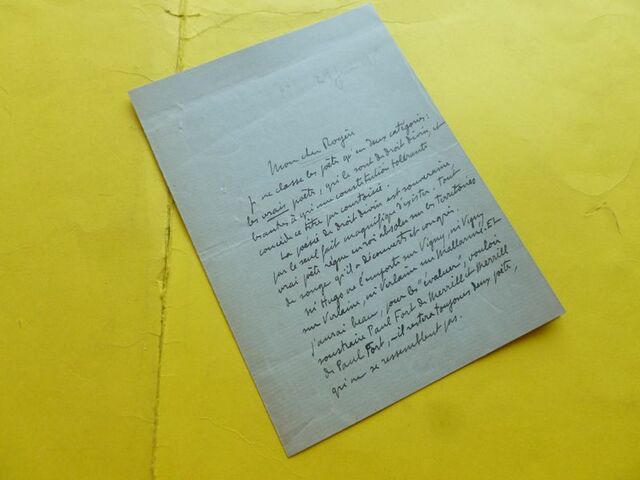 Mon cher Rogier
Je ne classe les poëtes qu'en deux catégories:
les vrais poëtes, qui le sont de droit divin, et
les autres à qui une constitution tolérante
concède ce titre par courtoisie.
La poésie de droit divin est souveraine
par le seul fait magnifique d'exister. Tout
vrai poëte règne en roi absolu sur les territoires
de songe qu'il a découverts et conquis.
Ni Hugo ne l'emporte sur Vigny, ni Vigny
sur Verlaine, ni Verlaine sur Mallarmé. Et
j'aurai beau, pour les "évaluer", vouloir
soustraire Paul Fort de Merrill et Merrill
de Paul Fort, il restera toujours deux poëtes,
qui ne se ressemblent pas.